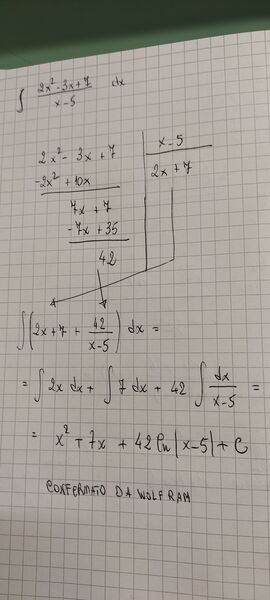 ∫ (2x² - 3x + 7)/(x - 5) dx
2x² - 3x + 7 | x - 5
-2x² + 10x | 2x + 7
7x + 7
-7x + 35
42
∫(2x + 7 + 42/(x-5)) dx =
= ∫ 2x dx + ∫ 7 dx + 42 ∫ dx/(x-5) =
= x² + 7x + 42 ln |x-5| + C
CONFERMATO DA WOLFRAM